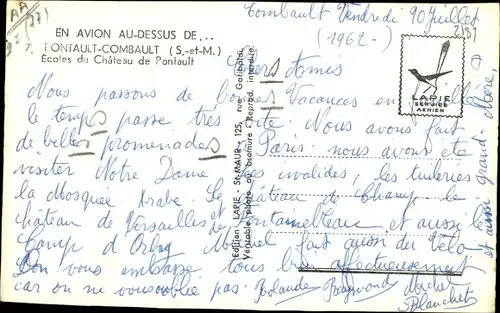 EN AVION AU-DESSUS DE...
7. PONTAULT-COMBAULT (S.-et-M.)
Ecoles du Château de Pontault
Combault Vendredi 20 Juillet
(1962-)
Chers Amis
Nous passons de bonnes Vacances en
le temps passe très vite. Nous avons fait
de belles promenades Paris. nous avons été
visiter Notre Dame les invalides, les tuileries
la Mosquée Arabe. Le château de Champ le
château de Versailles et de Fontainebleau et aussi le
Camp d'Orly Michel fait aussi du Vélo
Don vous embrasse tous bien affectueusement
car on ne vous oublie pas. Rolande Raymond Michel
Blanchet
Edition LAPIE, St-MAUR - 125, rue Garibaldi
Véritable photo au bromure - Reprod. interdite
LAPIE
SERVICE
AERIEN